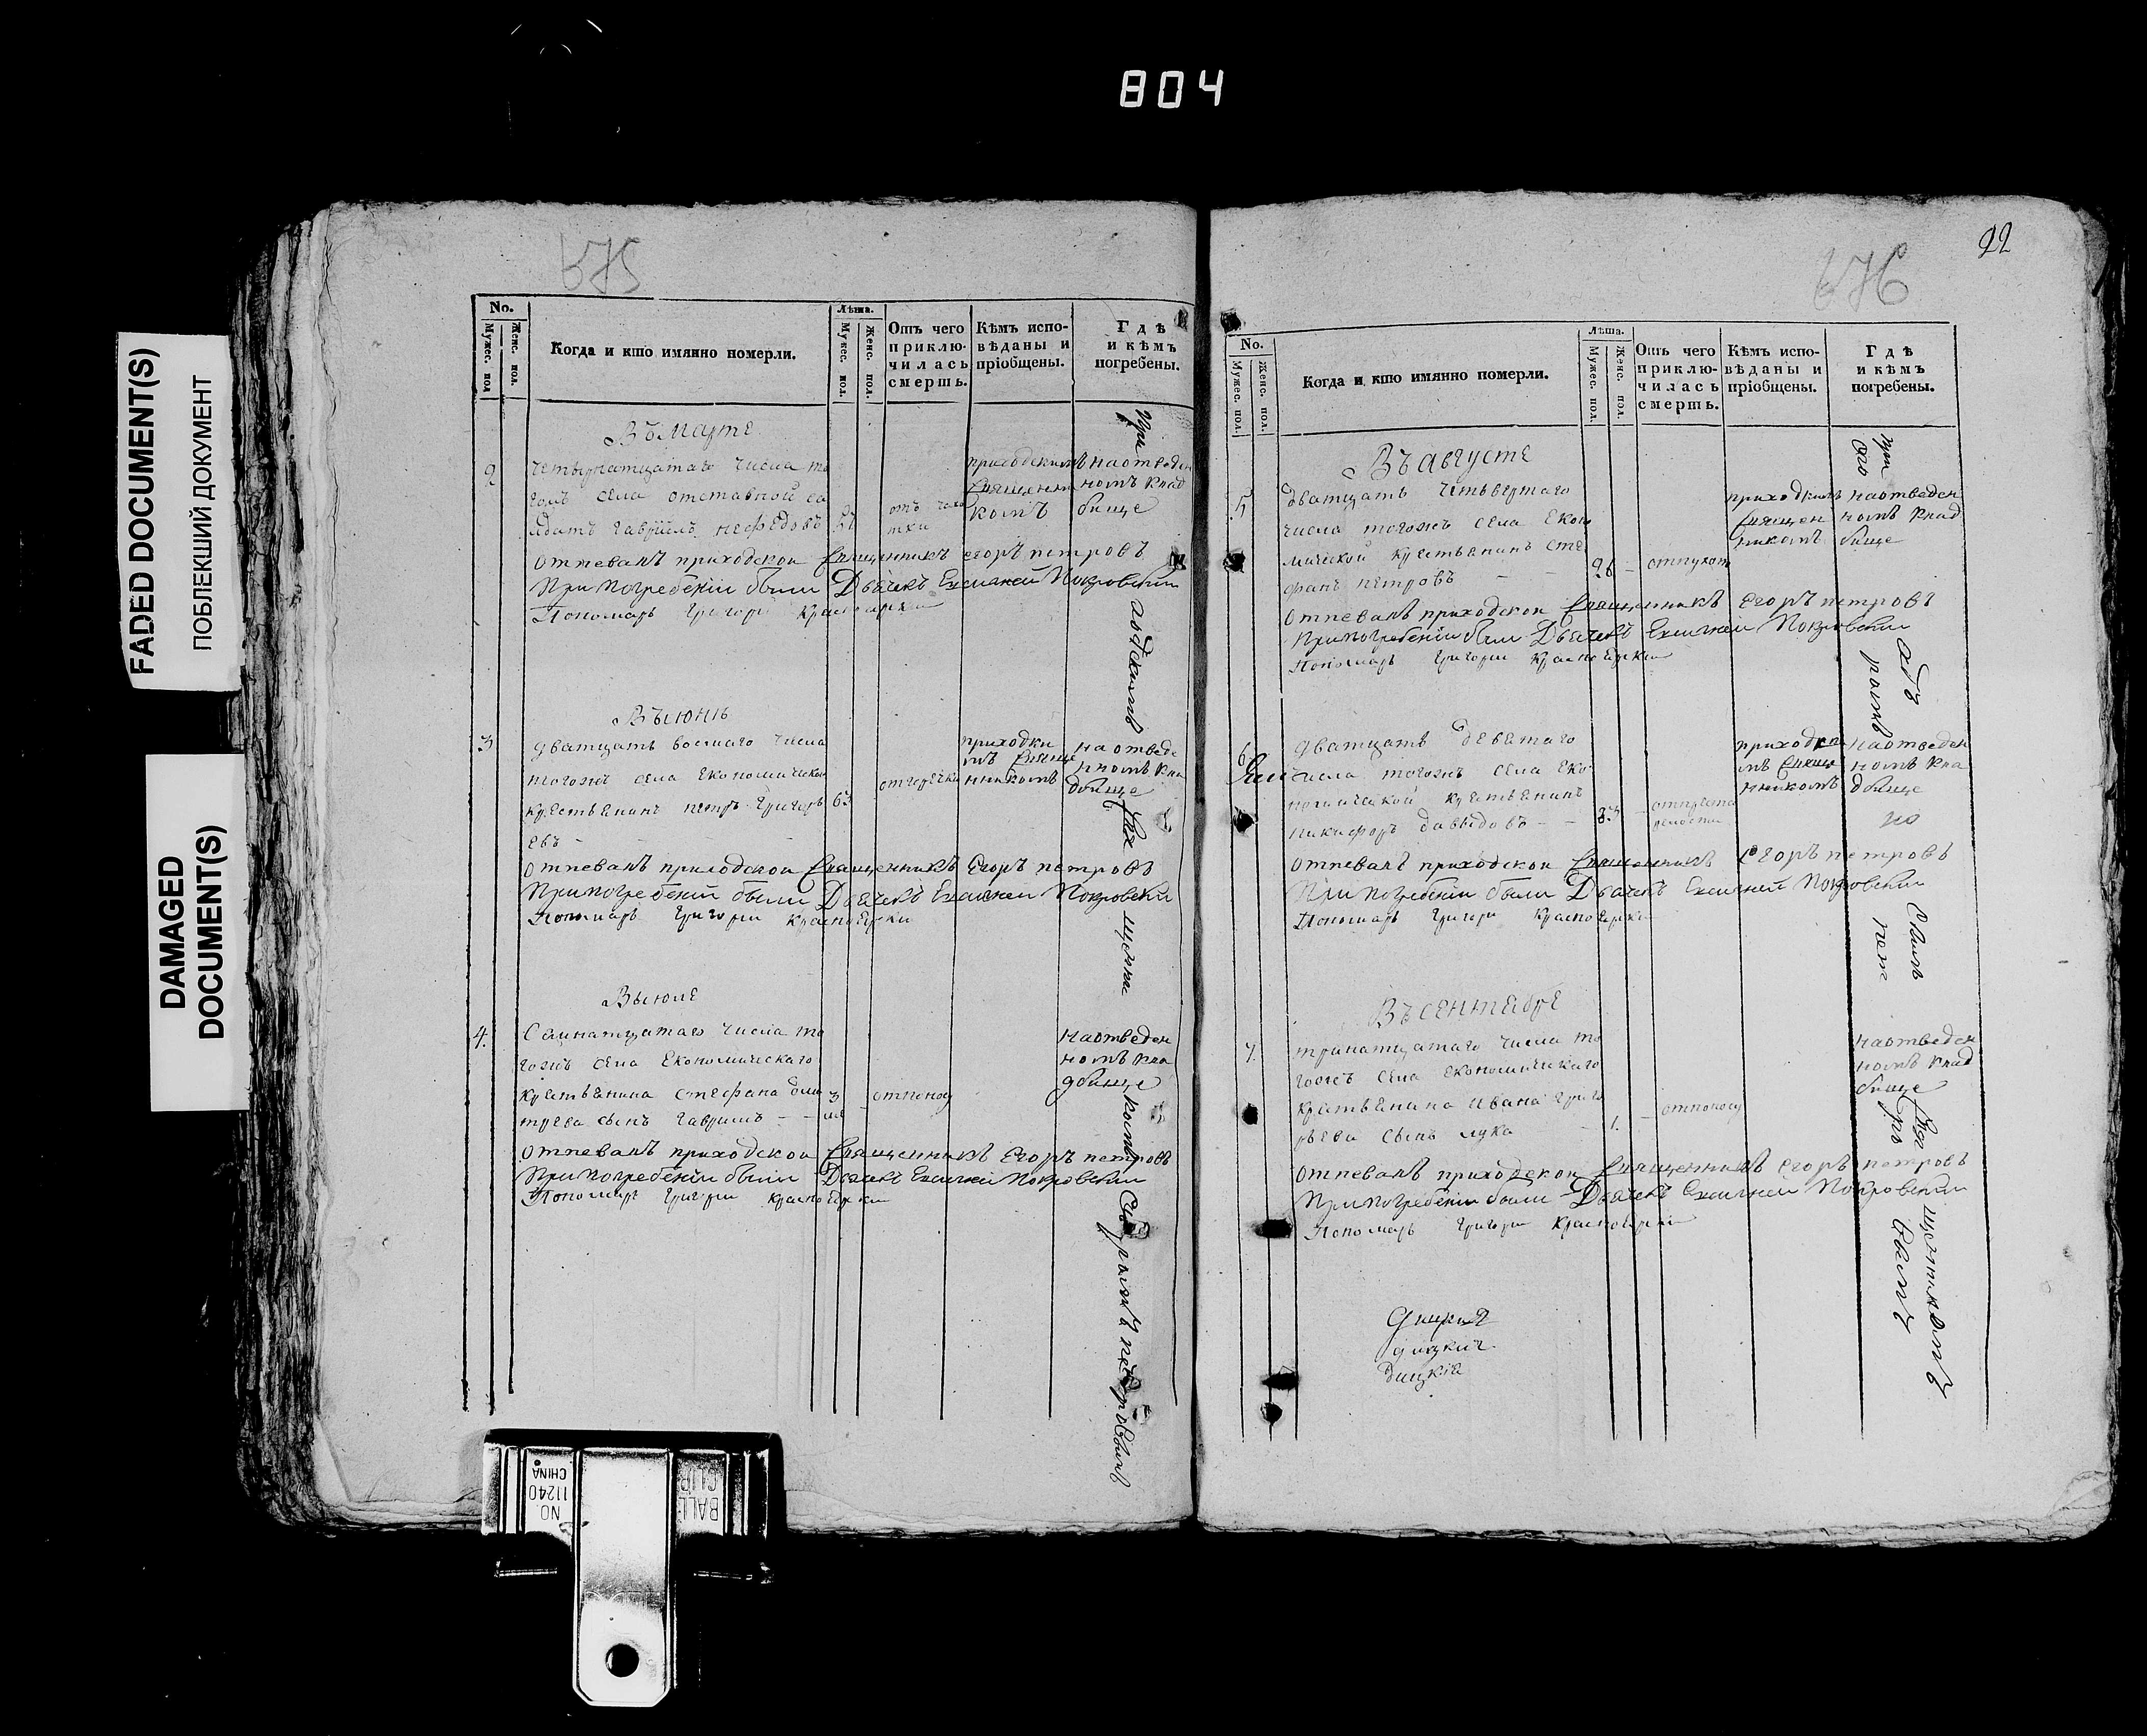 804
FADED DOCUMENT(S)
ПОБЛЕКШИЙ ДОКУМЕНТ
DAMAGED
DOCUMENT(S)
675
No.
Мужес. пол
Женс. пол.
Когда и кто имянно померли.
Лѣта.
Мужес. пол.
Женс. пол.
Отъ чего
приклю-
чилась
смерть.
Кѣмъ испо-
вѣданы и
пріобщены.
Гдѣ
и кѣмъ
погребены.
Въ марте
2
четырнатцатаго числа то
гожъ села отставной са
лдатъ гаврiилъ нефедовъ
отъ чахо
тки
приходскимъ
Священни
комъ
на отведен
номъ клад
бище
отпевалъ приходской Священникъ егоръ петровъ
При погребенiи были Дьячекъ Евгений Покровский
Пономарь григори красноярски
Въ июнѣ
3
дватцать восмаго числа
тогожъ села економической
крестьянинъ петръ григорь
евъ
63
от горячки
приходки
мъ Священ
нникомъ
на отведе
нномъ кла
дбище
отпевалъ приходской Священникъ Егоръ петровъ
При погребенiи были Дьячекъ Евгений Покровский
Пономарь григори красноярски
Въ июле
4.
Семнатцатаго числа то
гожъ села Економическаго
крестьянина стефана дми
трева сынъ гаврилъ
3
от поносу
на отведен
номъ кла
дбище
отпевалъ приходской Священникъ Егоръ петровъ
При погребенiи были Дьячекъ Евгений Покровский
Пономарь григори красноярски
Приходскимъ Священникомъ Егоромъ петровымъ
22
676
No.
Мужес. пол.
Женс. пол.
Когда и кто имянно померли.
Лѣта.
Мужес. пол.
Женс. пол.
Отъ чего
приклю-
чилась
смерть.
Кѣмъ испо-
вѣданы и
пріобщены.
Гдѣ
и кѣмъ
погребены.
Въ августе
5
дватцать четьвертаго
числа тогожъ села Еконо
мической крестьянинъ сте
фанъ петровъ
26
приходкимъ
Священ
никомъ
на отведен
номъ клад
бище
отпевалъ приходской Священникъ Егоръ петровъ
При погребенiи были Дьячекъ Евгений Покровский
Пономарь григори красноярски
6
дватцать деветаго
числа тогожъ села Еко
номической крестьянинъ
никифоръ давыдовъ
83
приходки
мъ Священ
нникомъ
на отведен
номъ кла
дбище
отпевалъ приходской Священникъ Егоръ петровъ
При погребенiи были Дьячекъ Евгений Покровский
Пономарь григори красноярски
Въ сентябре
7.
тринатцатаго числа то
гожъ села економическаго
крестьянина Ивана григо
рьева сынъ лука
1.
от поносу
на отведен
номъ клад
бище
отпевалъ приходской Священникъ егоръ петровъ
При погребенiи были Дьячекъ Евгений Покровский
Пономарь григори красноярски
NO.
11240
CHINA